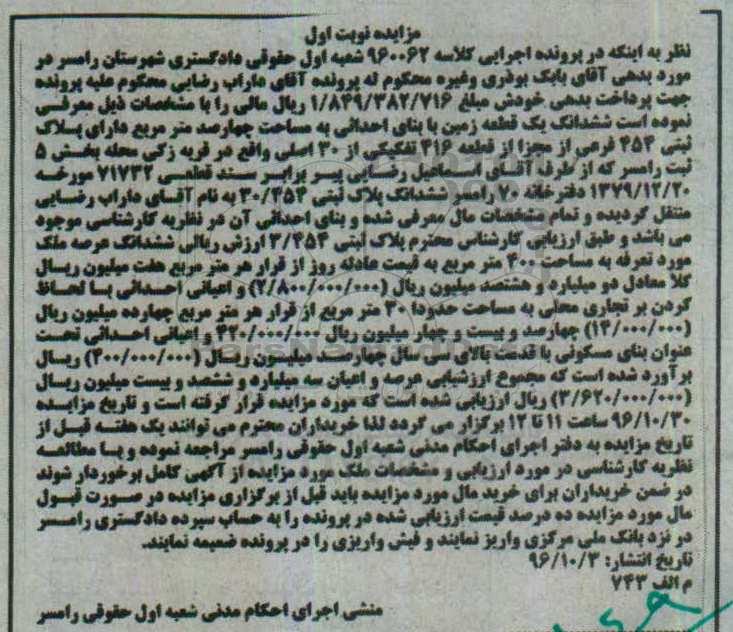 مزایده نوبت اول
نظر به اینکه در پرونده اجرایی کلاسه ۹۶۰۰۶۲ شعبه اول حقوقی دادگستری شهرستان رامسر در
مورد بدهی آقای بابک بوذری وغیره محکوم له پرونده آقای داراب رضایی محکوم علیه پرونده
جهت پرداخت بدهی خودش مبلغ ۱/۸۴۹/۳۸۲/۷۱۶ ریال مالی را با مشخصات ذیل معرفی
نموده است ششدانگ یک قطعه زمین با بنای احداثی به مساحت چهارصد متر مربع دارای پلاک
ثبتی ۴۵۴ فرعی از مجزا از قطعه ۴۱۶ تفکیکی از ۳۰ اصلی واقع در قریه زکی محله بخش ۵
ثبت رامسر که از طرف آقای اسماعیل رضایی پیر برابر سند قطعی ۷۱۷۳۲ مورخه
۱۳۷۹/۱۲/۲۰ دفترخانه رامسر ششدانگ پلاک ثبتی ۳۰/۴۵۴ به نام آقای داراب رضایی
منتقل گردیده و تمام مشخصات مال معرفی شده و بنای احداثی آن در نظریه کارشناسی موجود
می باشد و طبق ارزیابی کارشناس محترم پلاک ثبتی ۳/۴۵۴ ارزش ریالی ششدانگ عرصه ملک
مورد تعرفه به مساحت ۴۰۰ متر مربع به قیمت عادله روز از قرار هر متر مربع هفت میلیون ریال
کلا معادل دو میلیارد و هشتصد میلیون ریال (۲/۸۰۰/۰۰۰/۰۰۰) و اعیانی احداثی با لحاظ
کردن بر تجاری محلی به مساحت حدودا ۳۰ متر مربع از قرار هر متر مربع چهارده میلیون ریال
(۱۴/۰۰۰/۰۰۰) چهارصد و بیست و چهار میلیون ریال ۴۲۰/۰۰۰/۰۰۰ و اعیانی احداثی تحت
عنوان بنای مسکونی با قدمت بالای سی سال چهارصد میلیون ریال (۴۰۰/۰۰۰/۰۰۰) ریال
برآورد شده است که مجموع ارزشیابی عرصه و اعیان سه میلیارد و ششصد و بیست میلیون ریال
(۳/۶۲۰/۰۰۰/۰۰۰) ریال ارزیابی شده است که مورد مزایده قرار گرفته است و تاریخ مزایده
۹۶/۱۰/۳۰ ساعت ۱۱ تا ۱۲ برگزار می گردد لذا خریداران محترم می توانند یک هفته قبل از
تاریخ مزایده به دفتر اجرای احکام مدنی شعبه اول حقوقی رامسر مراجعه نموده و با مطالعه
نظریه کارشناسی در مورد ارزیابی و مشخصات ملک مورد مزایده از آگهی کامل برخوردار شوند
در ضمن خریداران برای خرید مال مورد مزایده باید قبل از برگزاری مزایده در صورت قبول
مال مورد مزایده ده درصد قیمت ارزیابی شده در پرونده را به حساب سپرده دادگستری رامسر
در نزد بانک ملی مرکزی واریز نمایند و فیش واریزی را در پرونده ضمیمه نمایند.
تاریخ انتشار: ۹۶/۱۰/۳
م الف ۷۴۳
منشی اجرای احکام مدنی شعبه اول حقوقی رامسر